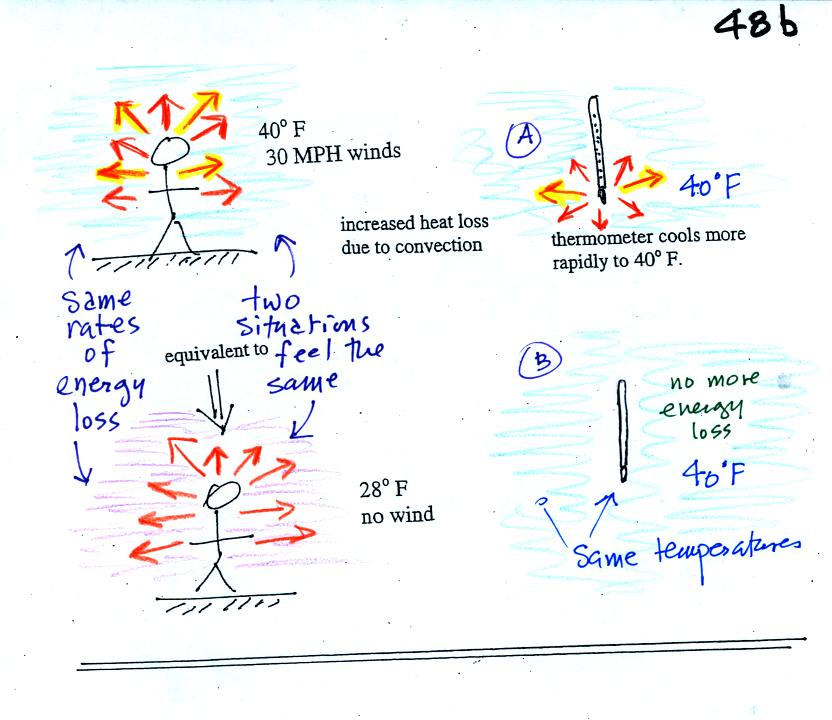 48b
40° F
30 MPH winds
increased heat loss
due to convection
Same
rates
of
energy
loss
two
situations
feel the
same
equivalent to
28° F
no wind
A
40°F
thermometer cools more
rapidly to 40° F.
B
no more
energy
loss
40°F
Same temperatures